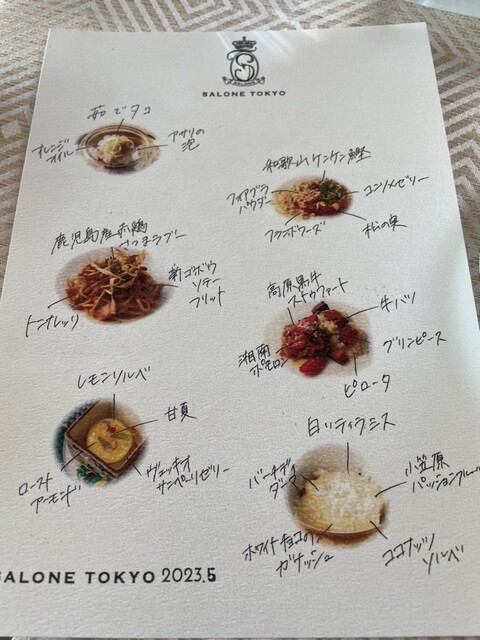 SALONE TOKYO
茹でタコ
オレンジ
オイル
アサリの
泡
和歌山ケンケン鰹
フォアグラ
パウダー
コンソメゼリー
フランボワーズ
松の実
鹿児島産赤鶏
さつまラブー
新ゴボウ
ソテー
フリット
トンナレッリ
高原黒牛
ストゥファート
牛ハツ
湘南
ポモロン
グリンピース
ピロータ
レモンソルベ
甘夏
ロースト
アーモンド
ヴェッキオ
サンペーリゼリー
白いティラミス
バーチ・ディ
ダーマ
小笠原
パッションフルーツ
ホワイトチョコの
ガナッシュ
ココナッツ
ソルベ
SALONE TOKYO 2023.5